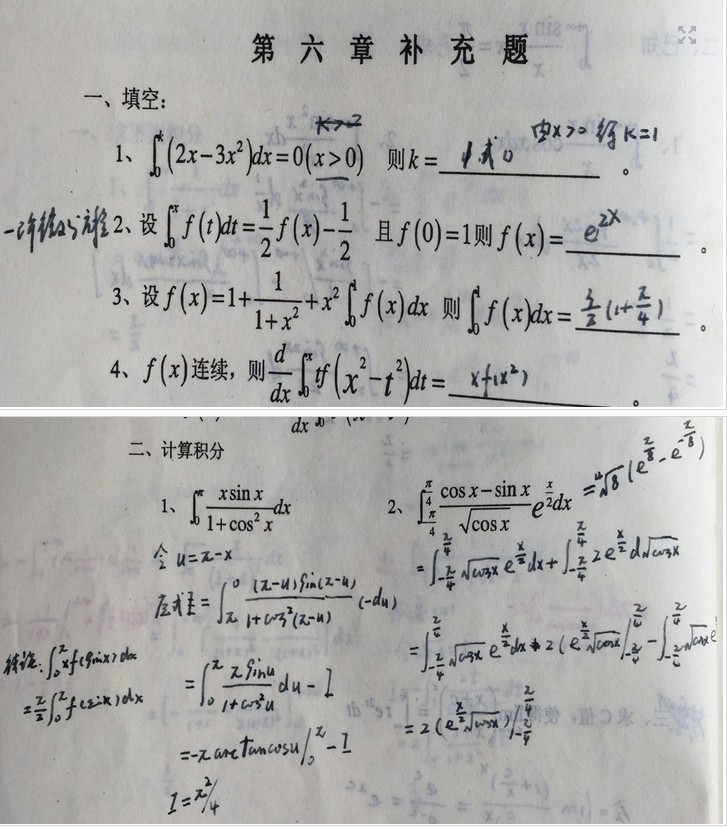 第六章补充题
一、填空：
K>2
由x>0 得 K=1
1、∫₀ᵏ(2x-3x²)dx=0(x>0) 则k= 1或0 。
2、设∫₀ˣf(t)dt=1/2f(x)-1/2 且f(0)=1则f(x)= e^{2x} 。
3、设f(x)=1+1/(1+x²)+x²∫₀¹f(x)dx 则∫₀¹f(x)dx= 3/2(1+π/4) 。
4、f(x)连续，则d/dx∫₀ˣtf(x²-t²)dt= xf(x²) 。
二、计算积分
1、∫₀^π xsinx/(1+cos²x)dx
令 u=π-x
原式=∫_π^0 (π-u)sin(π-u)/(1+cos²(π-u)) (-du)
=∫₀^π πsinu/(1+cos²u) du - I
=-π arctancosu|₀^π - I
I=π²/4
∫₀^π xf(sinx)dx
=π/2∫₀^π f(sinx)dx
2、∫_{-π/4}^{π/4} (cosx-sinx)/√cosx e^{x/2}dx =⁴√8(e^{π/8}-e^{-π/8})
=∫_{-π/4}^{π/4}√cosx e^{x/2}dx+∫_{-π/4}^{π/4}2e^{x/2}d√cosx
=∫_{-π/4}^{π/4}√cosx e^{x/2}dx+2(e^{x/2}√cosx|_{-π/4}^{π/4}-∫_{-π/4}^{π/4}√cosx e
=2(e^{x/2}√cosx)|_{-π/4}^{π/4}